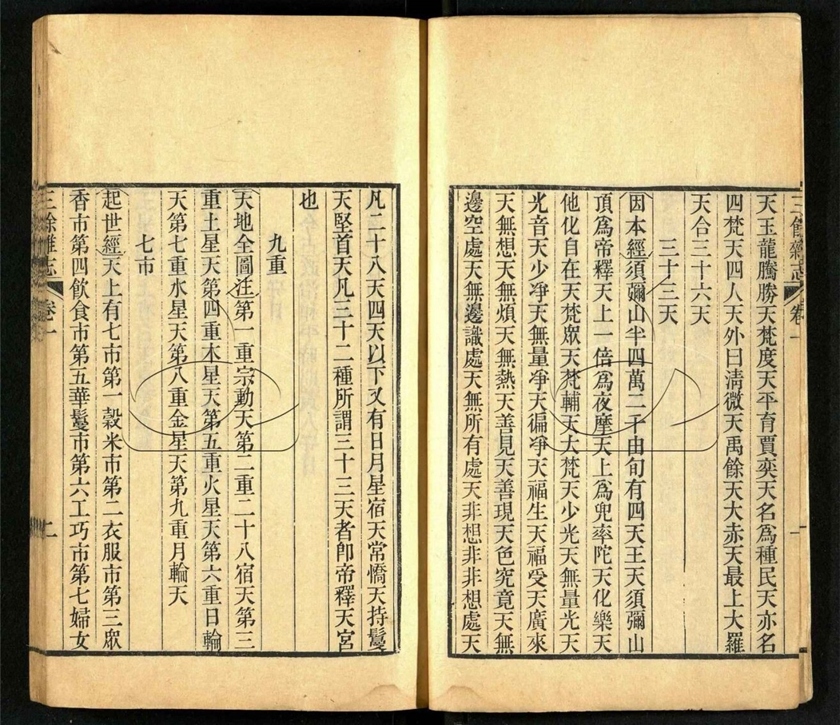 天玉龍騰勝天梵度天平育賈奕天名爲種民天亦名
四梵天四人天外曰淸微天禹餘天大赤天最上大羅
天合三十六天
三十三天
因本經須彌山半四萬二千由旬有四天王天須彌山
頂爲帝釋天上一倍爲夜摩天上爲兜率陀天化樂天
他化自在天梵眾天梵輔天大梵天少光天無量光天
光音天少凈天無量凈天徧凈天福生天福受天廣來
天無想天無煩天無熱天善見天善現天色究竟天無
邊空處天無邊識處天無所有處天非想非非想處天
三餘雜志
卷一
凡二十八天四天以下又有日月星宿天常憍天持鬘
天堅首天凡三十二種所謂三十三天者卽帝釋天宮
也
九重
天地全圖注第一重宗動天第二重二十八宿天第三
重土星天第四重木星天第五重火星天第六重日輪
天第七重水星天第八重金星天第九重月輪天
七市
起世經天上有七市第一穀米市第二衣服市第三眾
香市第四飲食市第五華鬘市第六工巧市第七婦女
三餘雜志
卷一